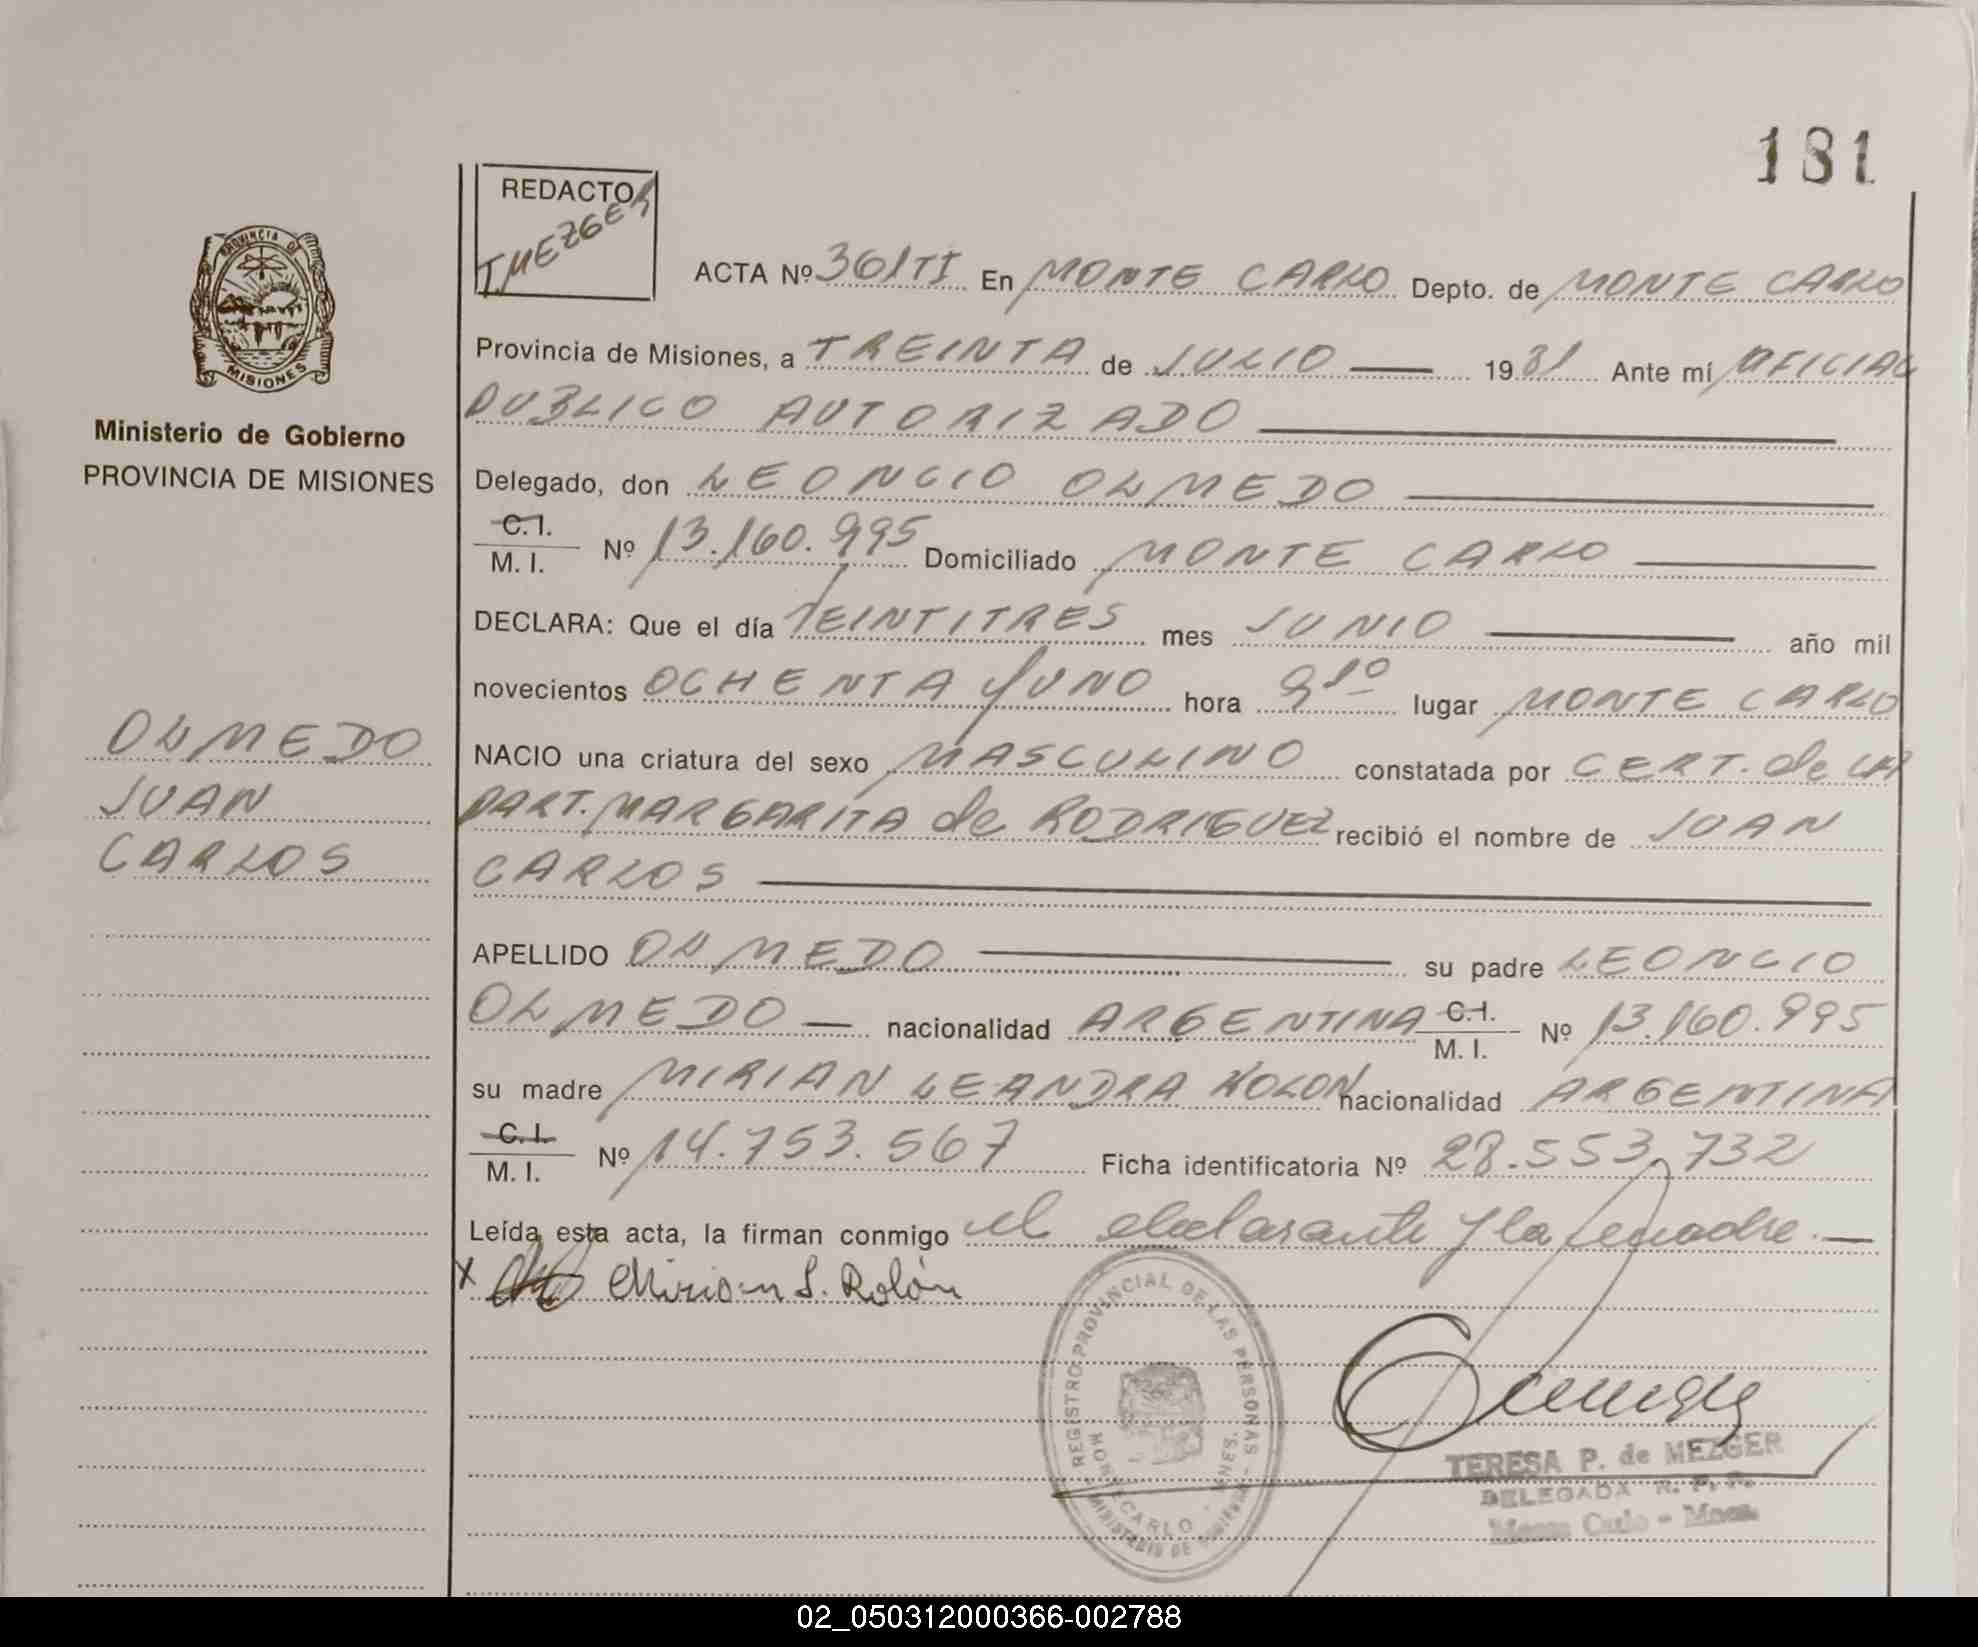 181
REDACTO
T MEZGER
PROVINCIA DE
MISIONES
Ministerio de Gobierno
PROVINCIA DE MISIONES
ACTA Nº 361TI En MONTE CARLO Depto. de MONTE CARLO
Provincia de Misiones, a TREINTA de JULIO 1981 Ante mí OFICIAL
PUBLICO AUTORIZADO
Delegado, don LEONCIO OLMEDO
C.I.
M. I. Nº 13.160.995 Domiciliado MONTE CARLO
DECLARA: Que el día VEINTITRES mes JUNIO año mil
novecientos OCHENTA Y UNO hora 9 1º lugar MONTE CARLO
OLMEDO
JUAN
CARLOS
NACIO una criatura del sexo MASCULINO constatada por CERT. de LA
PART. MARGARITA de RODRIGUEZ recibió el nombre de JUAN
CARLOS
APELLIDO OLMEDO su padre LEONCIO
OLMEDO nacionalidad ARGENTINA C.I. M. I. Nº 13.160.995
su madre MIRIAN LEANDRA ROLON nacionalidad ARGENTINA
C.I.
M. I. Nº 14.753.567 Ficha identificatoria Nº 28.553.732
Leída esta acta, la firman conmigo el declarante y la madre.
X Mirian L. Rolón
REGISTRO PROVINCIAL DE LAS PERSONAS
MONTECARLO
MINISTERIO DE GOBIERNO
TERESA P. de MEZGER
DELEGADA R. P. P.
Monte Carlo - Mnes.
02_050312000366-002788